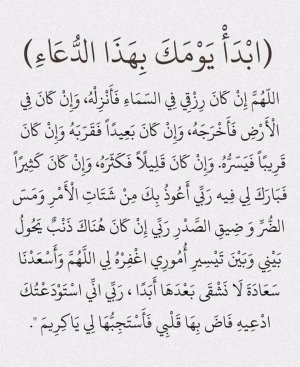 (ابْدَأْ يَوْمَكَ بِهَذَا الدُّعَاءِ)
اللّهُمَّ إِنْ كَانَ رِزْقِي فِي السّمَاءِ فَأَنْزِلْهُ، وَإِنْ كَانَ فِي
الْأَرْضِ فَأَخْرَجَهُ، وَإِنْ كَانَ بَعِيداً فَقَرَبَهُ وَإِنْ كَانَ
قَرِيبًا فَيَسَّرُهُ. وَإِنْ كَانَ قَلِيلاً فَكَثّرَهُ، وَإِنْ كَانَ كَثِيرًا
فَبَارَكَ لِي فِيه رَبِّي أَعُوذُ بِكَ مِنْ شَتَاتِ الْأَمْرِ وَمَسّ
الضُّرِّ وَ ضِيقِ الصَّدْرِ رَبِّي إِنْ كَانَ هُنَاكَ ذَنْبٌ يَحُولُ
بَيْنِي وَبَيْنَ تَيْسِيرِ أُمُورِي اغْفِرْهُ لِي اللَّهُمَّ وَأَسْعَدْنَا
سَعَادَةً لَا نَشْقَى بَعْدَهَا أَبَدًا ، رَبِّي انِّي اسْتَوْدَعْتُكَ
ادْعِيهِ فَاضَ بِهَا قَلْبِي فَأَسْتَجِبُّهَا لِي يَاكِرِيمَ ".